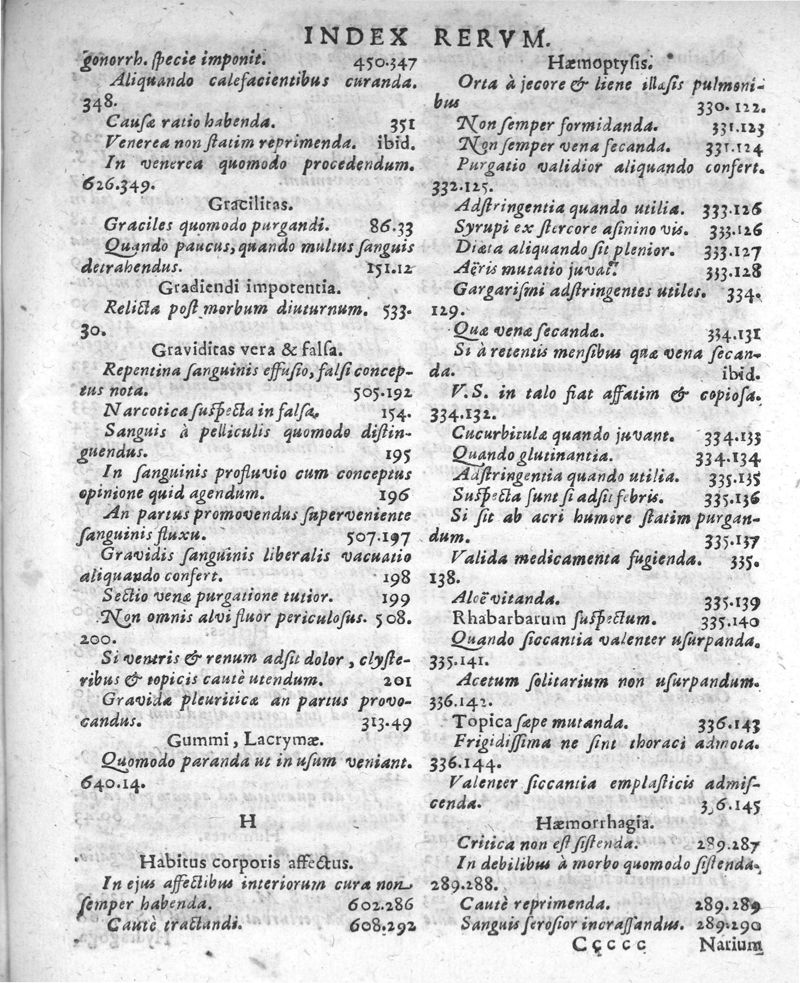 INDEX RERVM.
gonorrh. ſpecie imponit. 450.347
Aliquando calefacientibus curanda.
348.
Cauſæ ratio habenda. 351
Venerea non ſtatim reprimenda. ibid.
In venerea quomodo procedendum.
626.349.
Gracilitas.
Graciles quomodo purgandi. 86.33
Quando paucus, quando multus ſanguis
detrahendus. 151.12
Gradiendi impotentia.
Relicta poſt morbum diuturnum. 533.
30.
Graviditas vera & falſa.
Repentina ſanguinis effuſio, falſi concep-
tus nota. 505.192
Narcotica ſuſpecta in falſa. 154.
Sanguis à pelliculis quomodo diſtin-
guendus. 195
In ſanguinis profluvio cum conceptus
opinione quid agendum. 196
An partus promovendus ſuperveniente
ſanguinis fluxu. 507.197
Gravidis ſanguinis liberalis vacuatio
aliquando confert. 198
Sectio venæ purgatione tutior. 199
Non omnis alvi fluor periculoſus. 508.
200.
Si ventris & renum adſit dolor, clyſte-
ribus & topicis cautè utendum. 201
Gravidæ pleuriticæ an partus provo-
candus. 313.49
Gummi, Lacrymæ.
Quomodo paranda ut in uſum veniant.
640.14.
H
Habitus corporis affectus.
In ejus affectibus interiorum cura non
ſemper habenda. 602.286
Cautè tractandi. 608.292
Hæmoptyſis.
Orta à jecore & liene illæſis pulmoni-
bus 330.122.
Non ſemper formidanda. 331.123
Non ſemper vena ſecanda. 331.124
Purgatio validior aliquando confert.
332.125.
Adſtringentia quando utilia. 333.126
Syrupi ex ſtercore aſinino vis. 333.126
Diæta aliquando ſit plenior. 333.127
Aëris mutatio juvat. 333.128
Gargariſmi adſtringentes utiles. 334.
129.
Quæ venæ ſecandæ. 334.131
Si à retentis menſibus quæ vena ſecan-
da. ibid.
V.S. in talo fiat affatim & copioſa.
334.132.
Cucurbitulæ quando juvant. 334.133
Quando glutinantia. 334.134
Adſtringentia quando utilia. 335.135
Suſpecta ſunt ſi adſit febris. 335.136
Si ſit ab acri humore ſtatim purgan-
dum. 335.137
Valida medicamenta fugienda. 335.
138.
Aloë vitanda. 335.139
Rhabarbarum ſuſpectum. 335.140
Quando ſiccantia valenter uſurpanda.
335.141.
Acetum ſolitarium non uſurpandum.
336.142.
Topica ſæpe mutanda. 336.143
Frigidiſſima ne ſint thoraci admota.
336.144.
Valenter ſiccantia emplaſticis admiſ-
cenda. 336.145
Hæmorrhagia.
Critica non eſt ſiſtenda. 289.287
In debilibus à morbo quomodo ſiſtenda.
289.288.
Cautè reprimenda. 289.289
Sanguis ſeroſior incraſſandus. 289.290
Ccccc Narium